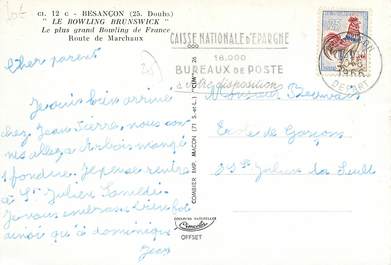 CI. 12 C - BESANÇON (25. Doubs)
" LE BOWLING BRUNSWICK "
Le plus grand Bowling de France
Route de Marchaux
Cher parent
Je suis bien arrivé
chez Jean Pierre, nous sommes allez a Arbois mangé
1 fondue. Je pense rentré
a St Julien Samedi.
Je vous embrasse bien fort
ainsi qu'à dominique
Jean
CAISSE NATIONALE D'EPARGNE
16.000
BUREAUX DE POSTE
à votre disposition
1966
DEPART
0,25
Monsieur
Ecole de Garçons
St Julien
COMBIER IMP. MACON (71 S.-et-L.) "CIM"
COULEURS NATURELLES
Cimcolor
OFFSET